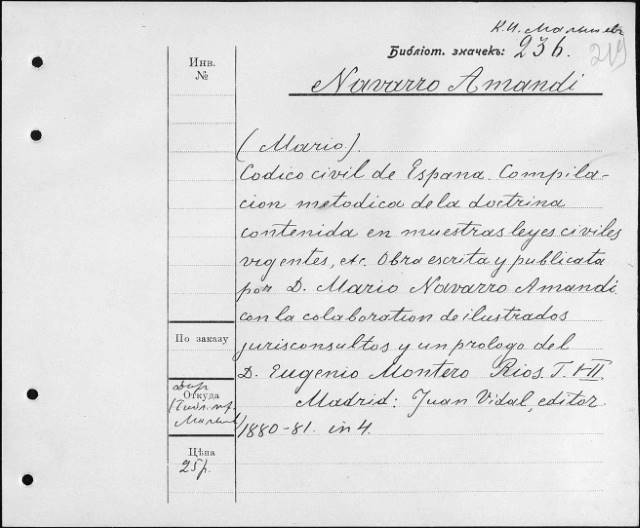 К. И. Малышев
Библіот. значекъ: 236.
219
Инв.
№
Navarro Amandi
(Mario).
Codico civil de Espana. Compila-
cion metodica de la doctrina
contenida en muestras leyes civiles
vigentes, etc. Obra escrita y publicata
por D. Mario Navarro Amandi
con la colaboration de ilustrados
jurisconsultos y un prologo del
D. Eugenio Montero Rios. T. I-II.
Madrid: Juan Vidal, editor
1880-81. in 4.
По заказу
Откуда
Дар
Малыш
Цѣна
25 р.